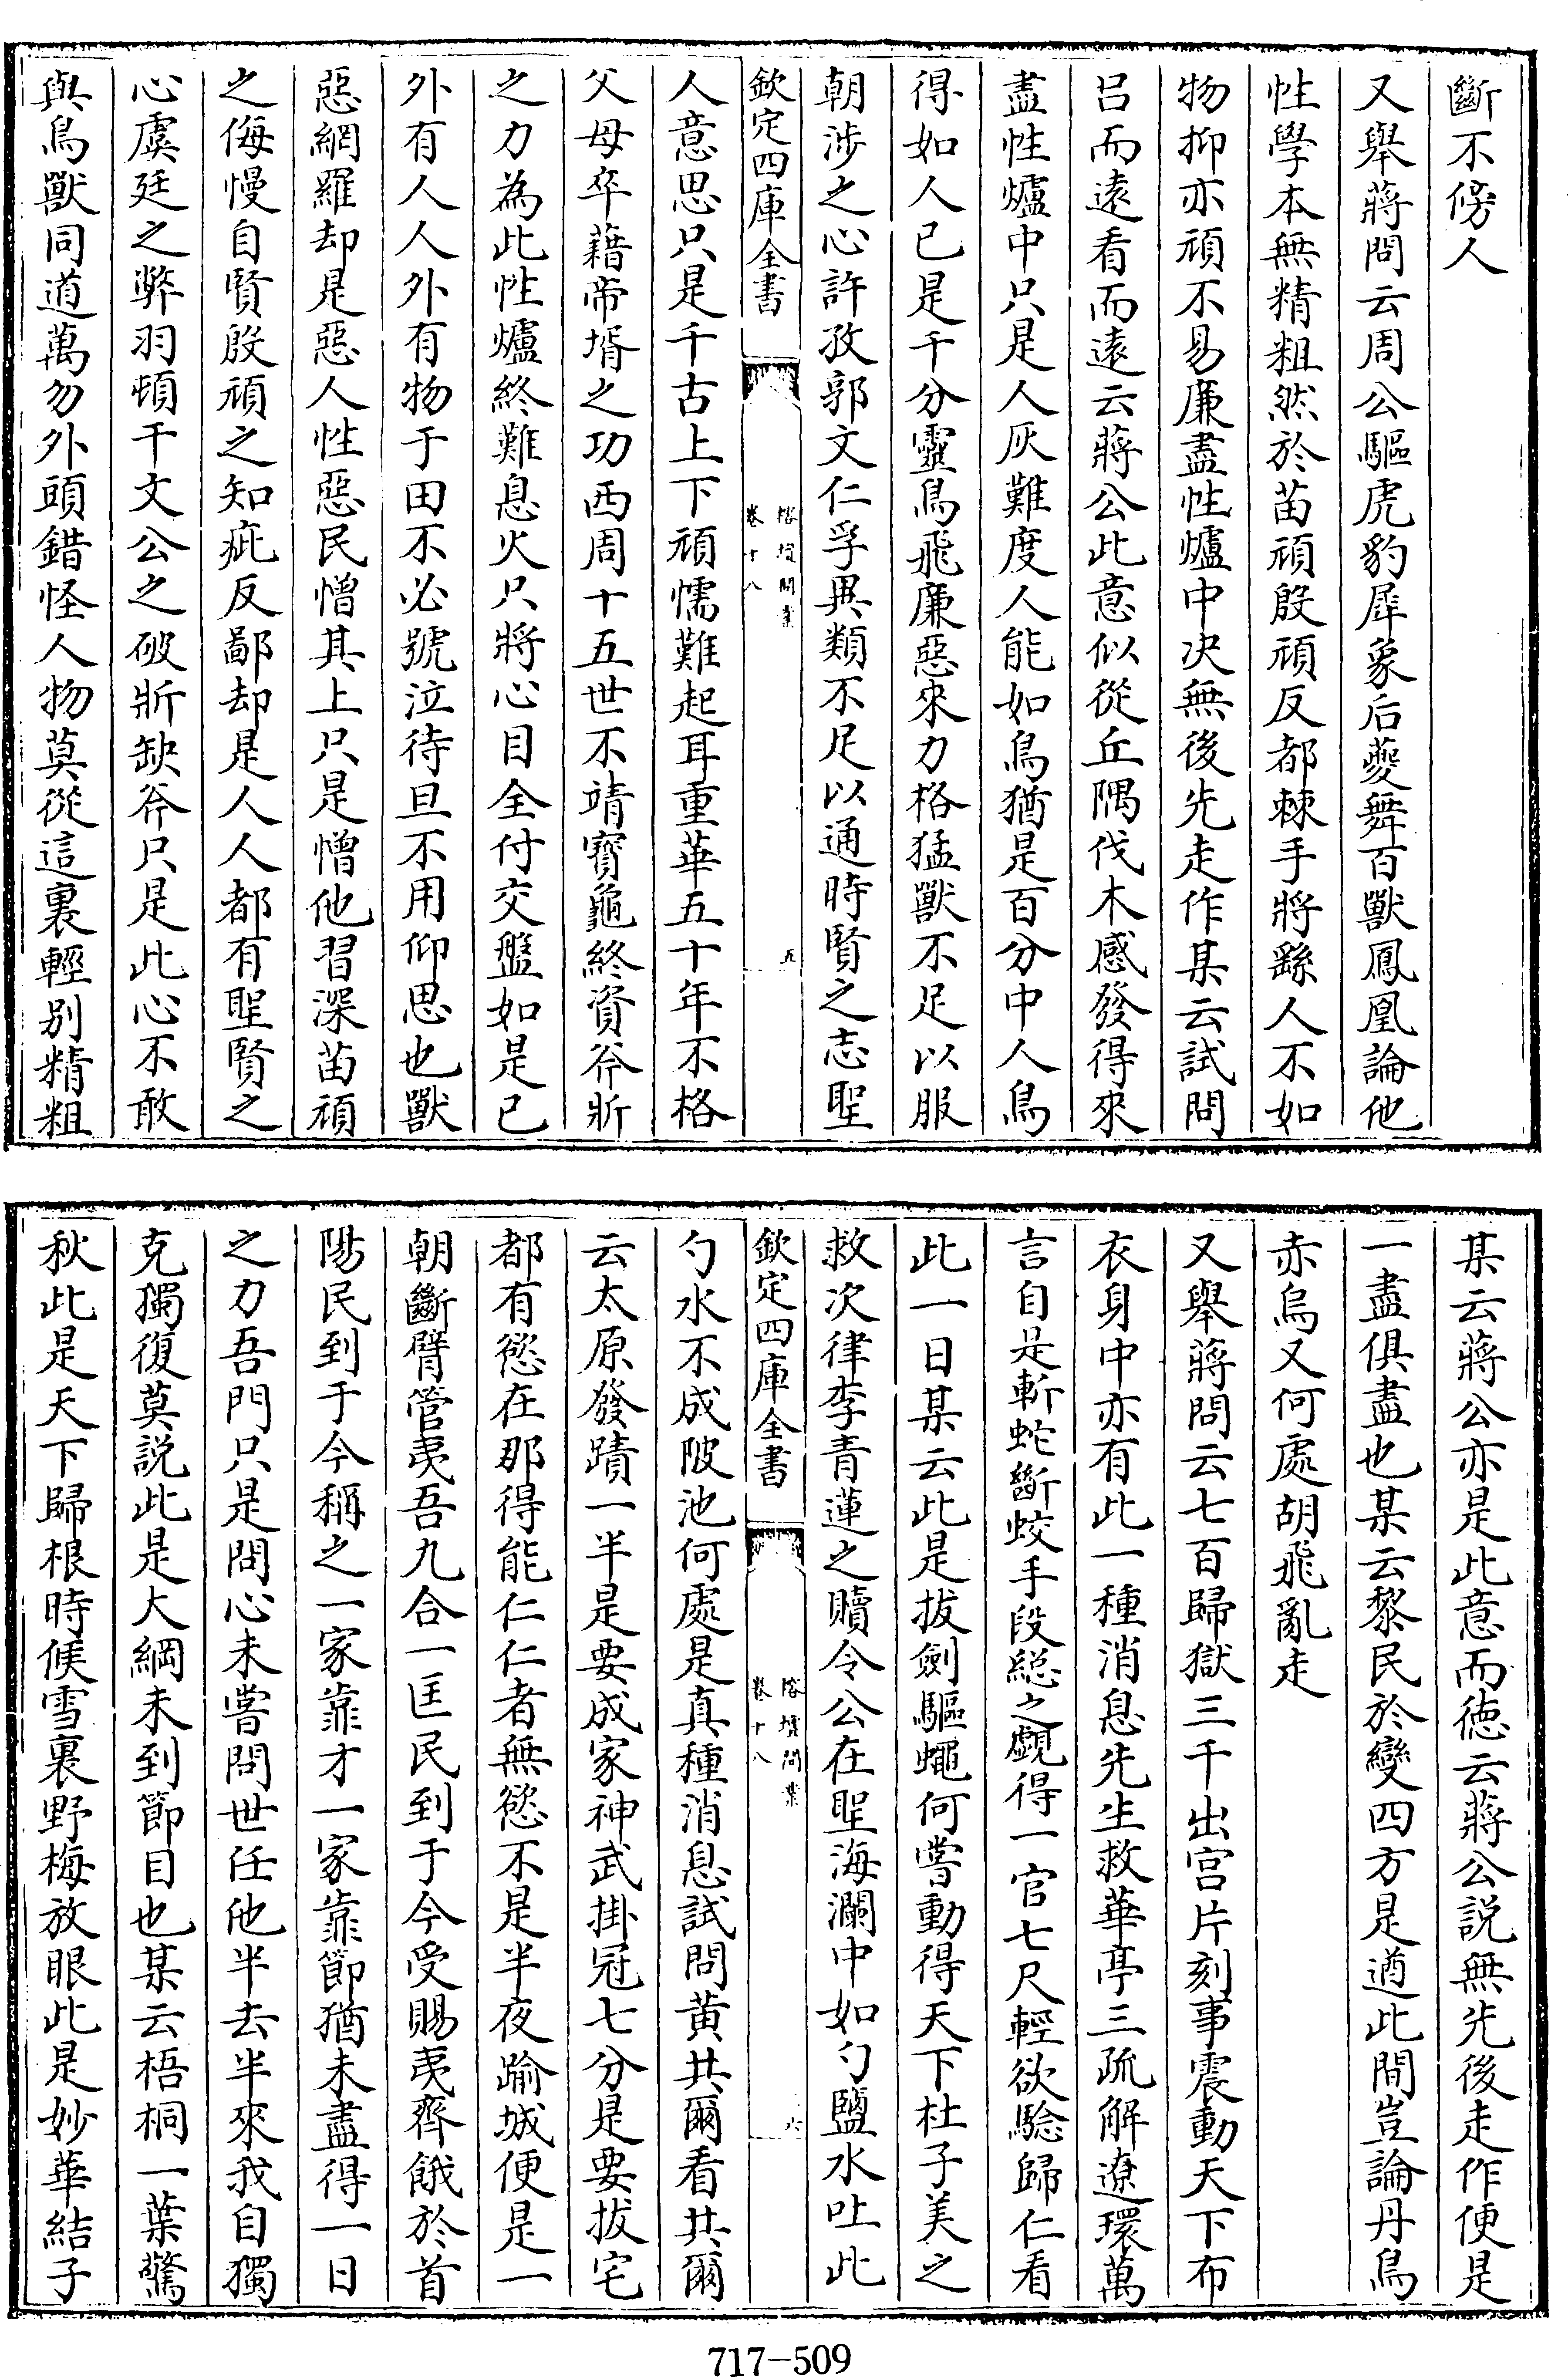 斷不傍人
又舉蔣問云周公驅虎豹犀象后夔舞百獸鳳凰論他
性學本無精粗然於苗頑殷頑反都棘手將繇人不如
物抑亦頑不易廉盡性爐中决無後先走作某云試問
吕而遠看而遠云蔣公此意似從丘隅伐木感發得來
盡性爐中只是人灰難度人能如鳥猶是百分中人鳥
得如人已是千分靈鳥飛廉惡來力格猛獸不足以服
朝涉之心許孜郭文仁孚異類不足以通時賢之志聖
欽定四庫全書
榕壇問業
卷十八
五
人意思只是千古上下頑懦難起耳重華五十年不格
父母卒藉帝壻之功西周十五世不靖寳龜終資斧斨
之力為此性爐終難息火只將心目全付交盤如是已
外有人人外有物于田不必號泣待旦不用仰思也獸
惡網羅却是惡人性惡民憎其上只是憎他習深苗頑
之侮慢自賢殷頑之知疵反鄙却是人人都有聖賢之
心虞廷之弊羽頓干文公之破斨缺斧只是此心不敢
與鳥獸同道萬勿外頭錯怪人物莫從這裏輕别精粗
某云蔣公亦是此意而徳云蔣公説無先後走作便是
一盡俱盡也某云黎民於變四方是遒此間豈論丹鳥
赤烏又何處胡飛亂走
又舉蔣問云七百歸獄三千出宫片刻事震動天下布
衣身中亦有此一種消息先生救華亭三疏解遼環萬
言自是斬蛇斷蛟手段総之覷得一官七尺輕欲騐歸仁看
此一日某云此是拔劍驅蠅何嘗動得天下杜子美之
救次律李青蓮之贖令公在聖海瀾中如勺鹽水吐此
欽定四庫全書
榕壇問業
卷十八
六
勺水不成陂池何處是真種消息試問黄共爾看共爾
云太原發蹟一半是要成家神武掛冠七分是要拔宅
都有慾在那得能仁仁者無慾不是半夜踰城便是一
朝斷臂管夷吾九合一匡民到于今受賜夷齊餓於首
陽民到于今稱之一家靠才一家靠節猶未盡得一日
之力吾門只是問心未嘗問世任他半去半來我自獨
克獨復莫説此是大綱未到節目也某云梧桐一葉驚
秋此是天下歸根時候雪裏野梅放眼此是妙華結子
717-509